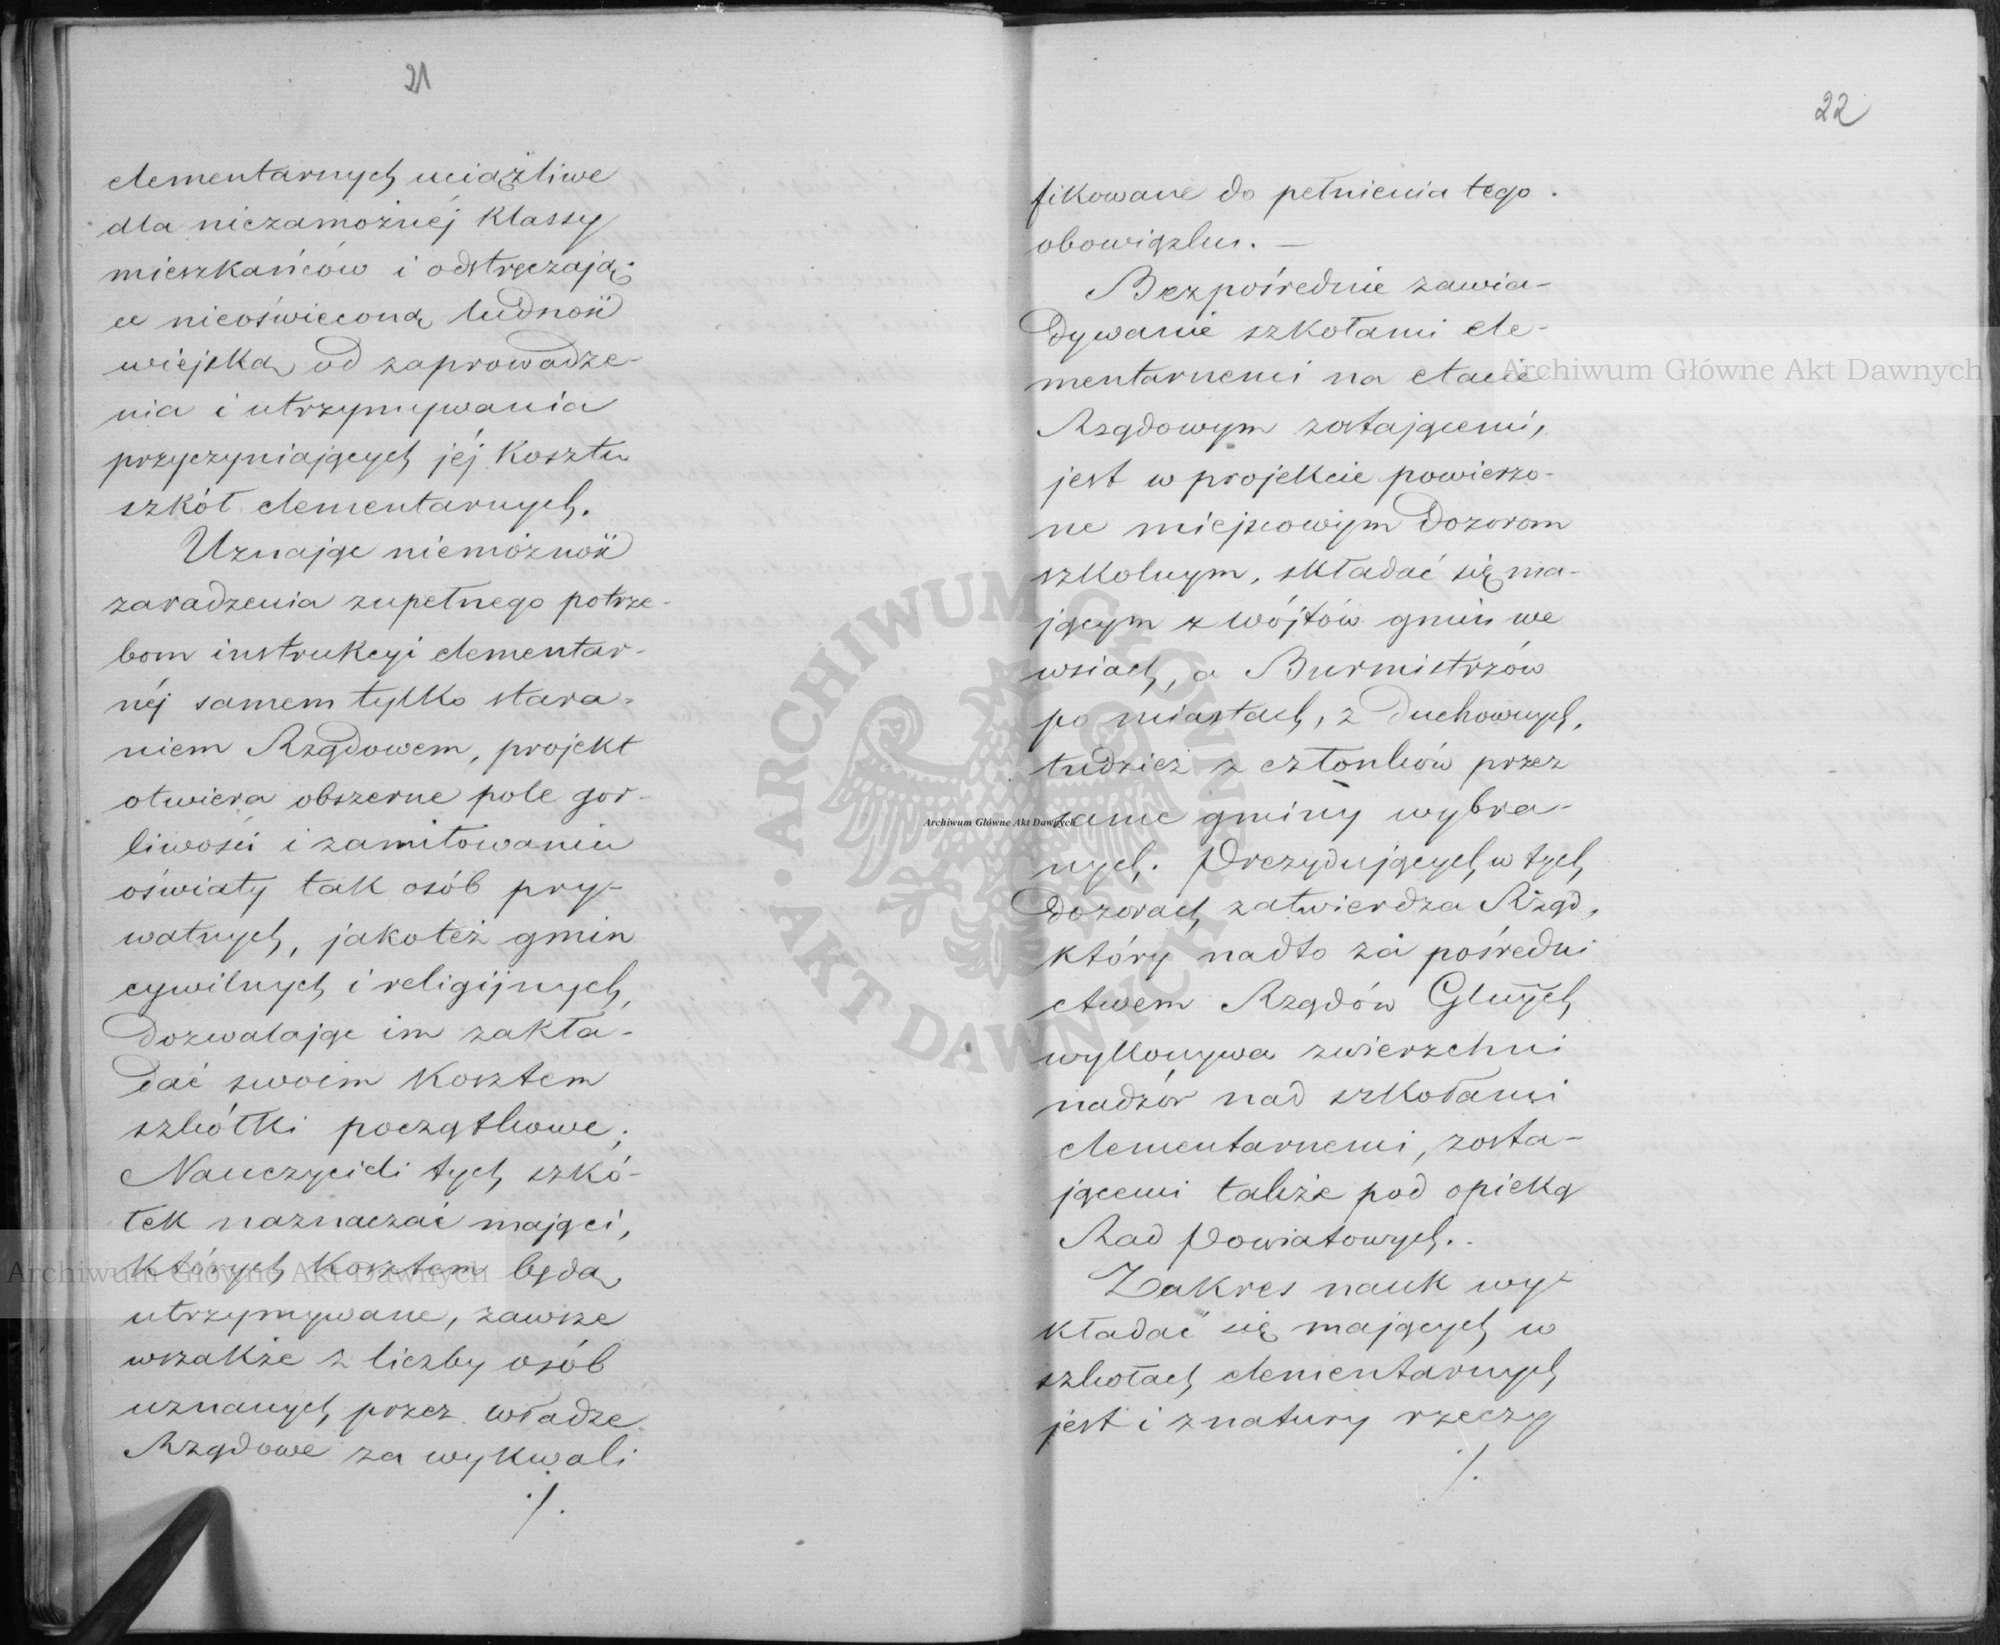 21
elementarnych uciążliwe
dla niezamożnéj klassy
mieszkańców i odstręczają-
ce nieoświeconą ludność
wiejską od zaprowadze-
nia i utrzymywania
przyczyniających jéj kosztu
szkół elementarnych.
Uznając niemożność
zaradzenia zupełnego potrze-
bom instrukcyi elementar-
néj samem tylko stara-
niem Rządowem, projekt
otwiera obszerne pole gor-
liwości i zamiłowaniu
oświaty tak osób pry-
watnych, jakoteż gmin
cywilnych i religijnych,
Dozwalając im zakła-
dać swoim kosztem
szkółki początkowe;
Nauczycieli tych szkó-
łek naznaczać mający,
których kosztem będą
utrzymywane, zawsze
wszakże z liczby osób
uznanych przez władze
Rządowe za wykwali
./.
22
fikowane do pełnienia tego
obowiązku. —
Bezpośrednie zawia-
dywanie szkołami ele-
mentarnemi na etacie
Rządowym zostającemi,
jest w projekcie powierzo-
ne miejscowym Dozorom
szkolnym, składać się ma-
jącym z wójtów gmin we
wsiach, a Burmistrzów
po miastach, z Duchownych,
tudzież z członków przez
same gminy wybra-
nych. Prezydujących w tych
Dozorach zatwierdza Rząd,
który nadto za pośredni
ctwem Rządów Glnych
wykonywa zwierzchni
nadzór nad szkołami
elementarnemi, zosta-
jącemi także pod opieką
Rad Powiatowych.
Zakres nauk wy-
kładać się mających w
szkołach elementarnych
jest i z natury rzeczy
./.
Archiwum Główne Akt Dawnych
Archiwum Główne Akt Dawnych
Archiwum Główne Akt Dawnych
ARCHIWUM GŁÓWNE AKT DAWNYCH